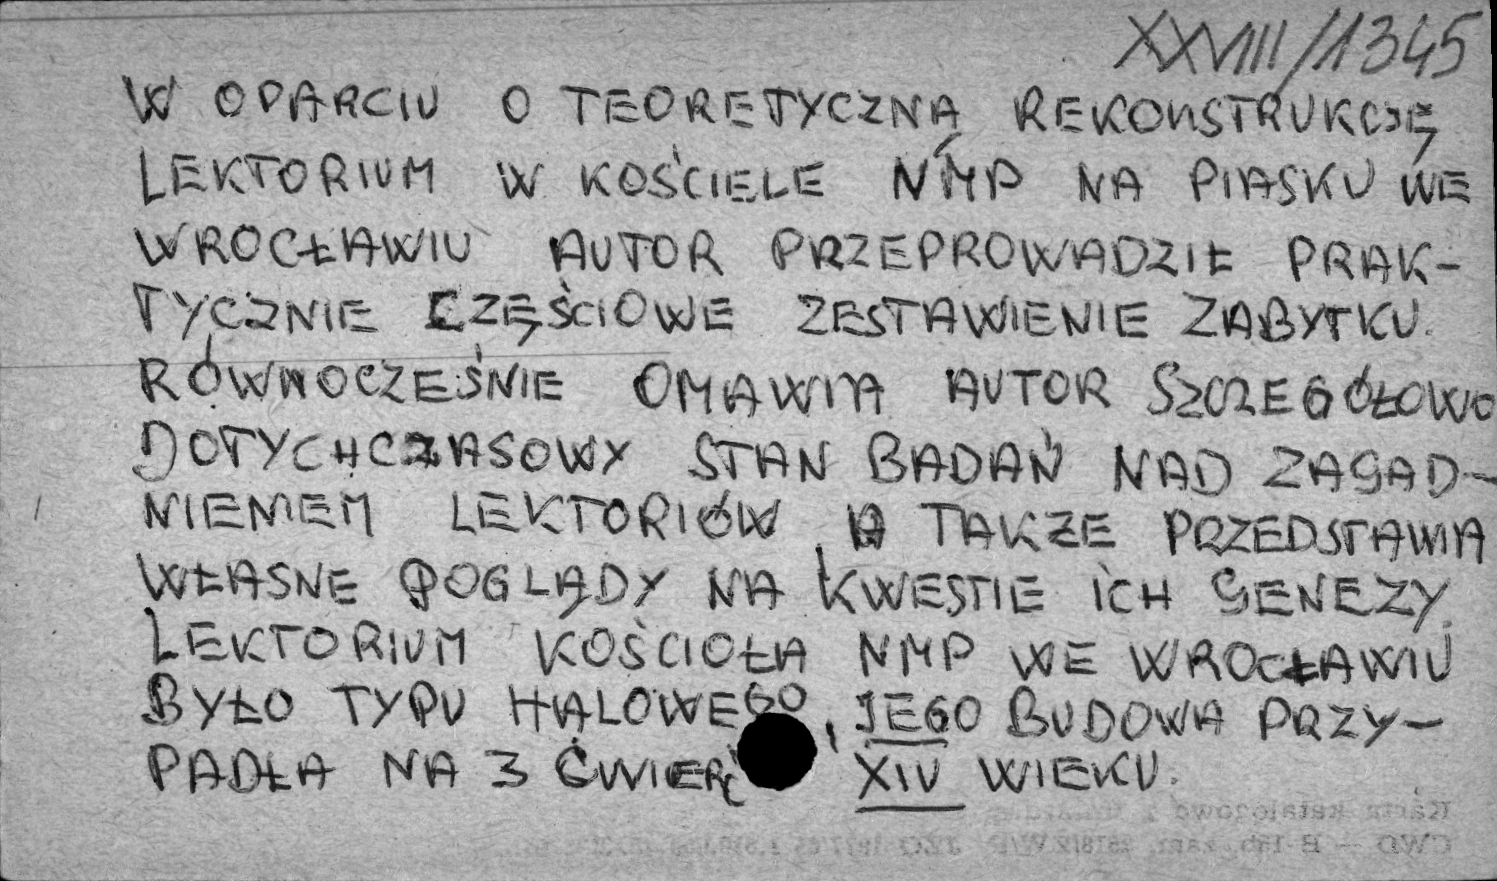 XXVIII/1345
W OPARCIU O TEORETYCZNĄ REKONSTRUKCJĘ
LEKTORIUM W KOŚCIELE NMP NA PIASKU WE
WROCŁAWIU AUTOR PRZEPROWADZIŁ PRAK-
TYCZNIE CZĘŚCIOWE ZESTAWIENIE ZABYTKU.
RÓWNOCZEŚNIE OMAWIA AUTOR SZCZEGÓŁOWO
DOTYCHCZASOWY STAN BADAŃ NAD ZAGAD-
NIENIEM LEKTORIÓW, A TAKŻE PRZEDSTAWIA
WŁASNE POGLĄDY NA KWESTIE ICH GENEZY.
LEKTORIUM KOŚCIOŁA NMP WE WROCŁAWIU
BYŁO TYPU HALOWEGO, JEGO BUDOWA PRZY-
PADŁA NA 3 ĆWIERĆ XIV WIEKU.
Karta katalogowa
CWD — H-15b, zam.